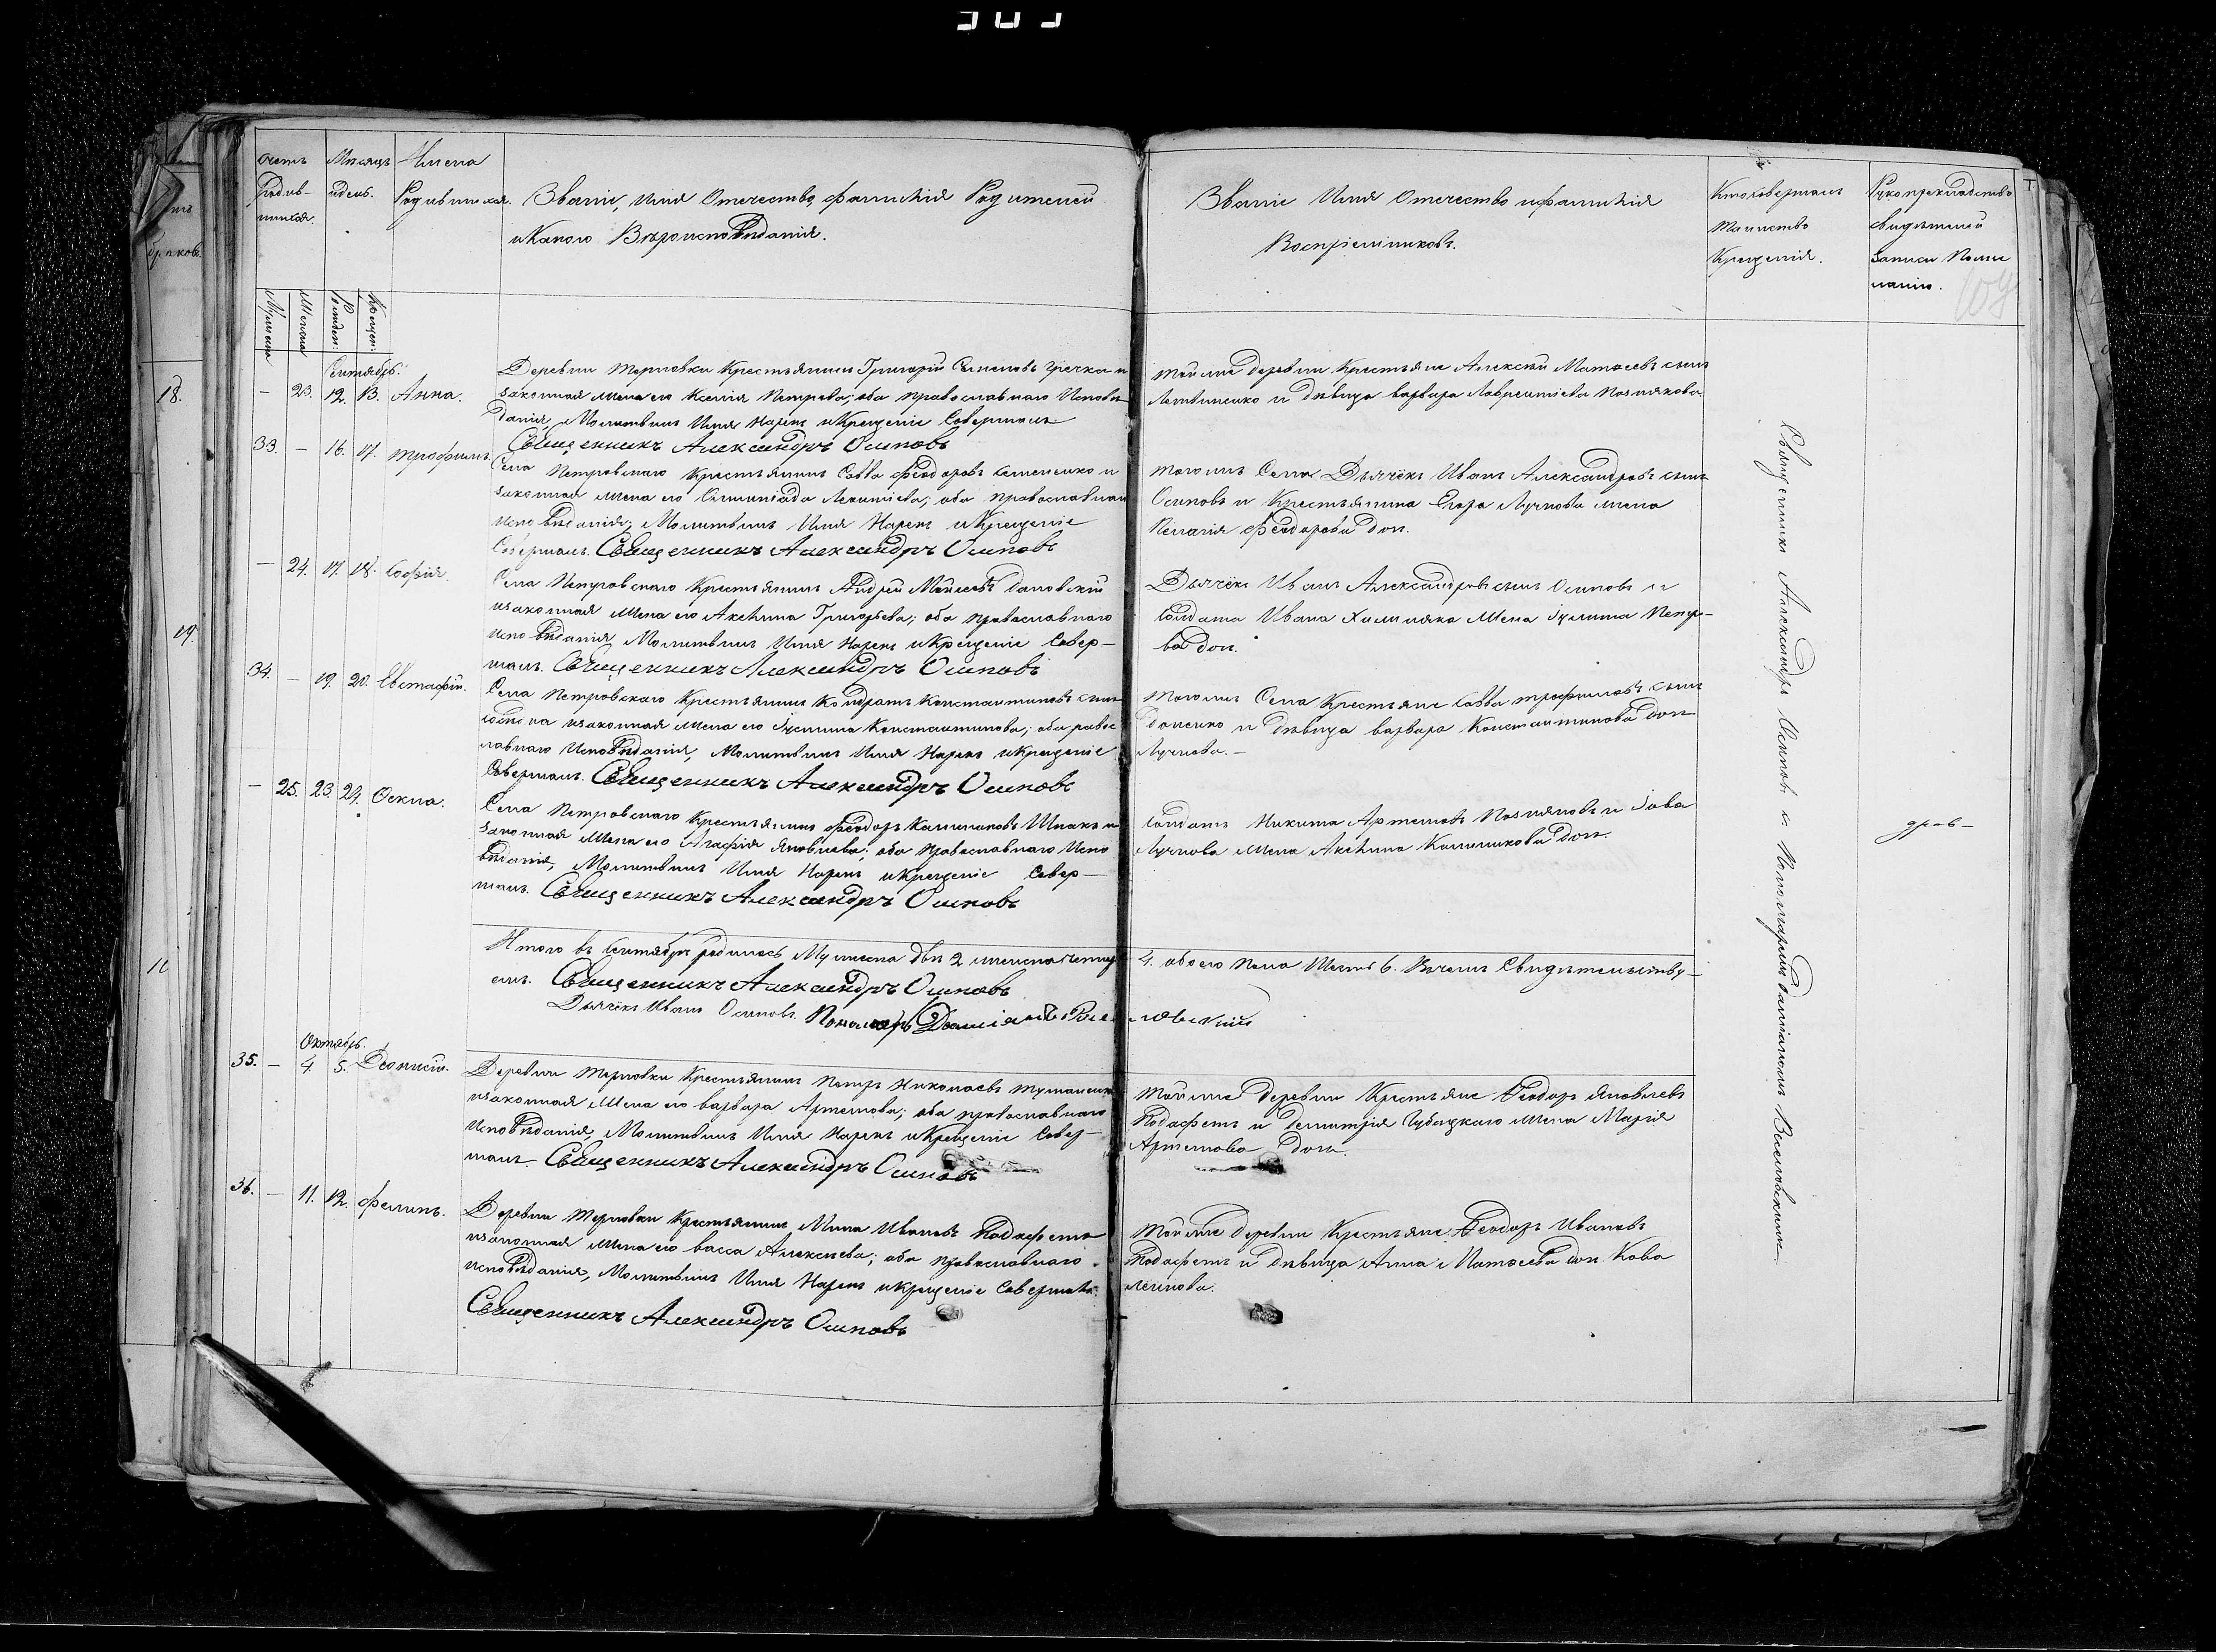 Счетъ
Родив-
шихся.
Мѣсяцъ
и день.
Имена
Родившихся.
Званіе, Имя Отечество, Фамилія Родителей
и Какого Вѣроисповѣданія.
Званіе Имя Отечество и фамилія
Воспріемниковъ.
Кто совершалъ
таинство
Крещенія.
Рукоприкладство
свидѣтелей
записи по же
ланію.
109
Мужеска
Женска
Рожден:
Крещен:
браковъ
18.
19.
Сентябрь.
— 23. 12. 13. Анна.
Деревни Терновки Крестьянинъ Григорій Семеновъ Гречка и
законная жена его Ксенія Петрова; оба православнаго Исповѣ
данія, Молитвилъ Имя Нарекъ и Крещеніе Совершалъ
Священникъ Александръ Осиповъ
Той же деревни Крестьяне Алексѣй Матвеевъ сынъ
Литвиненко и дѣвица варвара Лаврентіева Познякова
33. — 16. 17. Трофимъ.
Села Петровскаго Крестьянинъ Савва Феодоровъ Семененко и
законная жена его Леонтіева; оба православнаго
исповѣданія, Молитвилъ Имя Нарекъ и Крещеніе
Совершалъ. Священникъ Александръ Осиповъ
Того же Села Дьячёкъ Иванъ Александровъ сынъ
Осиповъ и Крестьянина Егора Лучнова жена
Пелагія Феодорова доч.
— 24. 17. 18. Софія.
Села Петровскаго Крестьянинъ Андрей Моисеевъ
и законная жена его Аксѣнина Григорьева; оба православнаго
исповѣданія Молитвилъ Имя Нарекъ и Крещеніе Совер—
шалъ. Священникъ Александръ Осиповъ
Дьячёкъ Иванъ Александровъ сынъ Осиповъ и
солдата Ивана жена Іулита Петро—
ва доч.
34. — 19. 20. Евстафій.
Села Петровскаго Крестьянинъ Кондратъ Константиновъ сынъ
и законная жена его Іустина Константинова; оба правос
лавнаго Исповѣданія, Молитвилъ Имя Нарекъ и Крещеніе
Совершалъ. Священникъ Александръ Осиповъ
Того же Села Крестьяне Савва Трофимовъ сынъ
и дѣвица варвара Константинова доч
Лучнова.—
— 25. 23. 24. Фекла.
Села Петровскаго Крестьянинъ Феодоръ Калиниковъ Шпакъ и
законная жена его Агафія Яковлева; оба православнаго Испо
вѣданія, Молитвилъ Имя Нарекъ и Крещеніе Совер—
шалъ. Священникъ Александръ Осиповъ
Солдатъ Никита Артемовъ Позняковъ и Іова
Лучнова жена Аксѣнина Калиникова доч.
Итого въ Сентябрѣ родилось Мужеска два 2 женска четыре
4. обоего пола Шесть 6. Вчемъ Свидѣтельству—
емъ. Священникъ Александръ Осиповъ
Дьячёкъ Иванъ Осиповъ. Пономарь Даміанъ
Октябрь.
35. — 4. 5. Діонисій.
Деревни Терновки Крестьянинъ Петръ Николаевъ
и законная жена его варвара Артемова; оба православнаго
исповѣданія, Молитвилъ Имя Нарекъ и Крещеніе Совер—
шалъ. Священникъ Александръ Осиповъ
Той же деревни Крестьяне Феодоръ Яковлевъ
и Димитрія Чубацкаго жена Марія
Артемова доч.
36. — 11. 12. Филипъ.
Деревни Терновки Крестьянинъ Мина Ивановъ
и законная жена его васса Алексѣева; оба православнаго
исповѣданія, Молитвилъ Имя Нарекъ и Крещеніе Совершалъ.
Священникъ Александръ Осиповъ
Той же деревни Крестьяне Феодоръ Ивановъ
и дѣвица Анна Матвеева доч. Кова
ленкова.
Священникъ Александръ Осиповъ съ Пономаремъ Даміаномъ